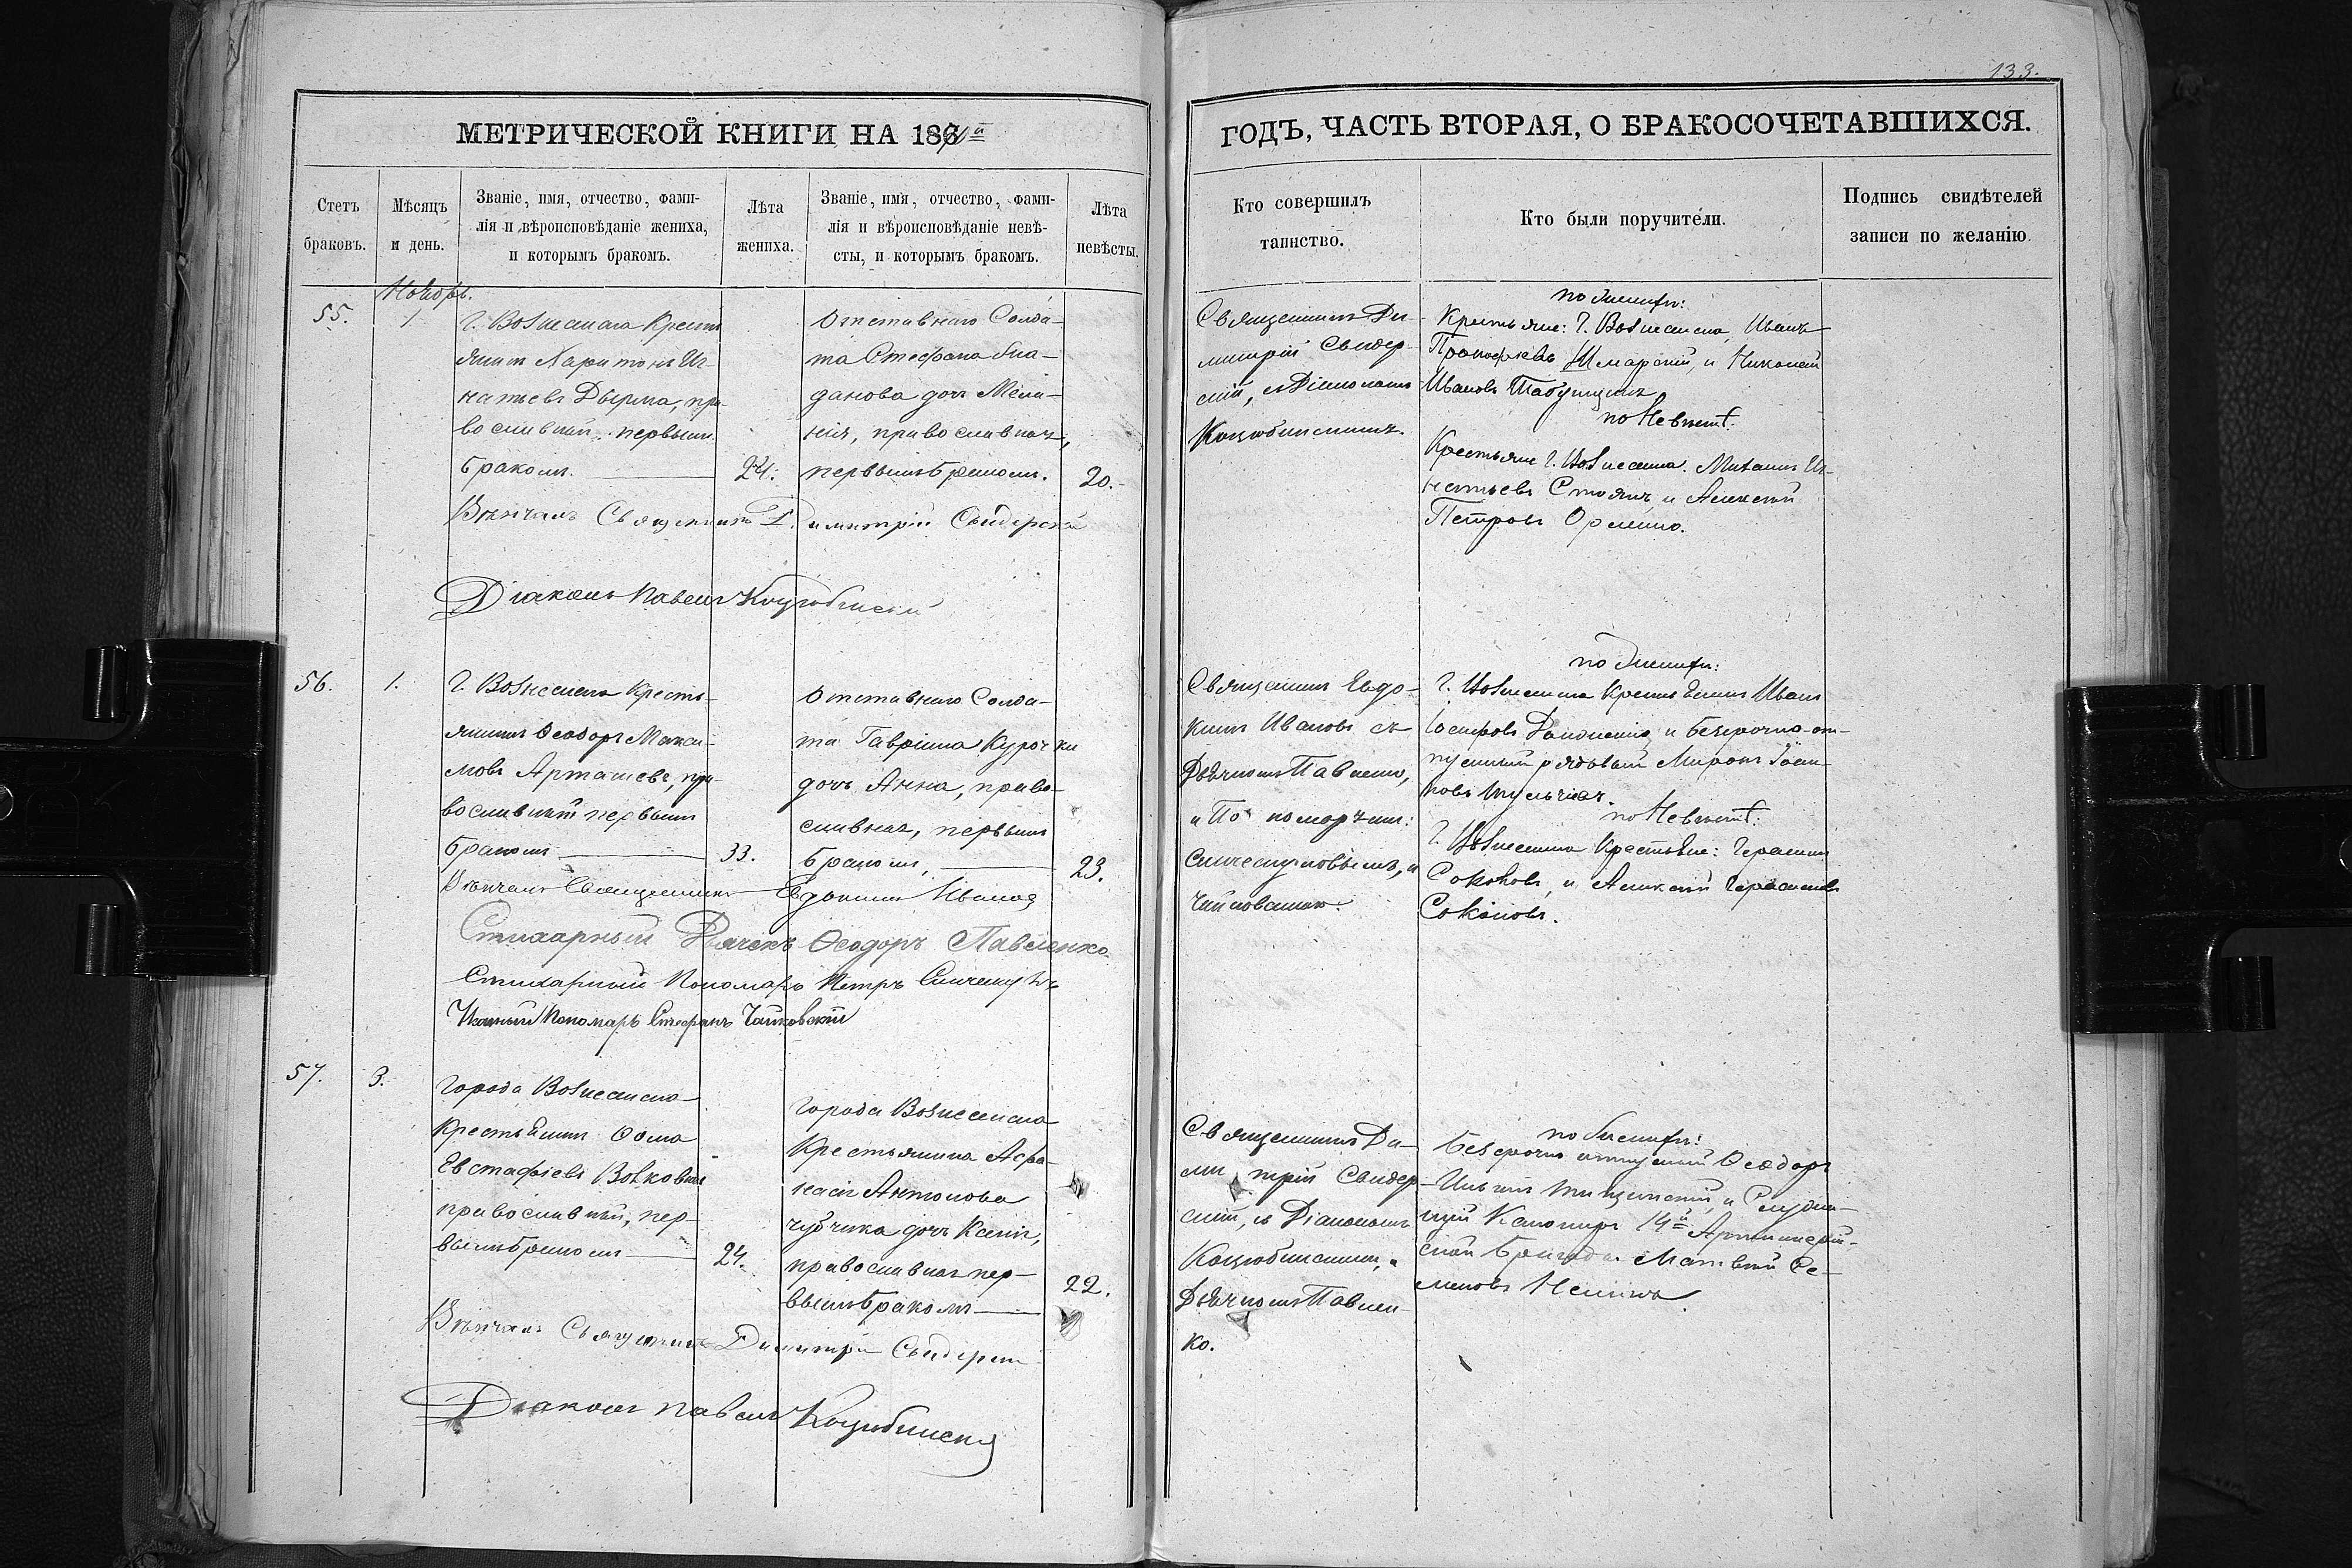 133.
МЕТРИЧЕСКОЙ КНИГИ НА 1870й
ГОДЪ, ЧАСТЬ ВТОРАЯ, О БРАКОСОЧЕТАВШИХСЯ.
Счетъ
браковъ.
Мѣсяцъ
и день.
Званіе, имя, отчество, фами-
лія и вѣроисповѣданіе жениха,
и которымъ бракомъ.
Лѣта
жениха.
Званіе, имя, отчество, фами-
лія и вѣроисповѣданіе невѣ-
сты, и которымъ бракомъ.
Лѣта
невѣсты.
Кто совершилъ
таинство.
Кто были поручители.
Подпись свидѣтелей
записи по желанію
55.
Ноябрь.
1
г. Вознесенска Кресть
янинъ Харитонъ Иг-
натьевъ Дырма, пра-
вославный, первымъ
бракомъ.
24.
Отставнаго Солда-
та Стефана
данова дочь Мела-
нія, православная,
первымъ бракомъ.
20.
Священникъ Ди-
митрій Свидер-
скій, съ Діакономъ
Коцюбинскимъ.
по женихѣ:
Крестьяне: г. Вознесенска, Иванъ
Прокофьевъ Шмарскій, и Николай
Ивановъ Табунщикъ
по Невѣстѣ.
Крестьяне г. Вознесенска. Михаилъ Иг-
натьевъ Стоянъ, и Алексѣй
Петровъ Орленко.
Вѣнчалъ Священникъ Димитрій Свидерскій
Діаконъ Павелъ Коцюбинскій
56.
1.
г. Вознесенска Кресть-
янинъ Ѳеодоръ Макси-
мовъ Арташевъ, пра-
вославный первымъ
бракомъ
33.
Отставнаго Солда-
та Гавріила Курочки
дочь Анна, право-
славная, первымъ
бракомъ,
23.
Священникъ Евдо-
кимъ Ивановъ съ
Дьячкомъ Павленко,
и Пономарями:
и
Чайковскимъ.
по женихѣ:
г. Вознесенска Крестьянинъ Иванъ
Іосифовъ и безсрочно-от-
пускный рядовый Миронъ Іоан-
новъ
по Невѣстѣ:
г. Вознесенска Крестьяне: Герасимъ
Соколовъ, и Алексѣй Герасимовъ
Соколовъ.
Вѣнчалъ Священникъ Евдокимъ Ивановъ
Стихарный Дьячекъ Ѳеодоръ Павленко
Стихарный Пономарь Петръ
Пономарь Стефанъ Чайковскій
57.
3.
Города Вознесенска
Крестьянинъ Ѳома
Евстафіевъ Волковъ
православный, пер-
вымъ бракомъ
24.
Города Вознесенска
Крестьянина Аѳа-
насія Антонова
Чубчика дочь Ксенія,
православная пер-
вымъ бракомъ
22.
Священникъ Ди-
митрій Свидер-
скій, съ Діакономъ
Коцюбинскимъ, и
Дьячкомъ Павлен-
ко.
по женихѣ:
Безсрочно отпускный Ѳеодоръ
Ильинъ и Служа-
щій Канониръ 14й Артиллерій-
ской бригады Матвѣй Се-
меновъ
Вѣнчалъ Священникъ Димитрій Свидерскій
Діаконъ Павелъ Коцюбинскій